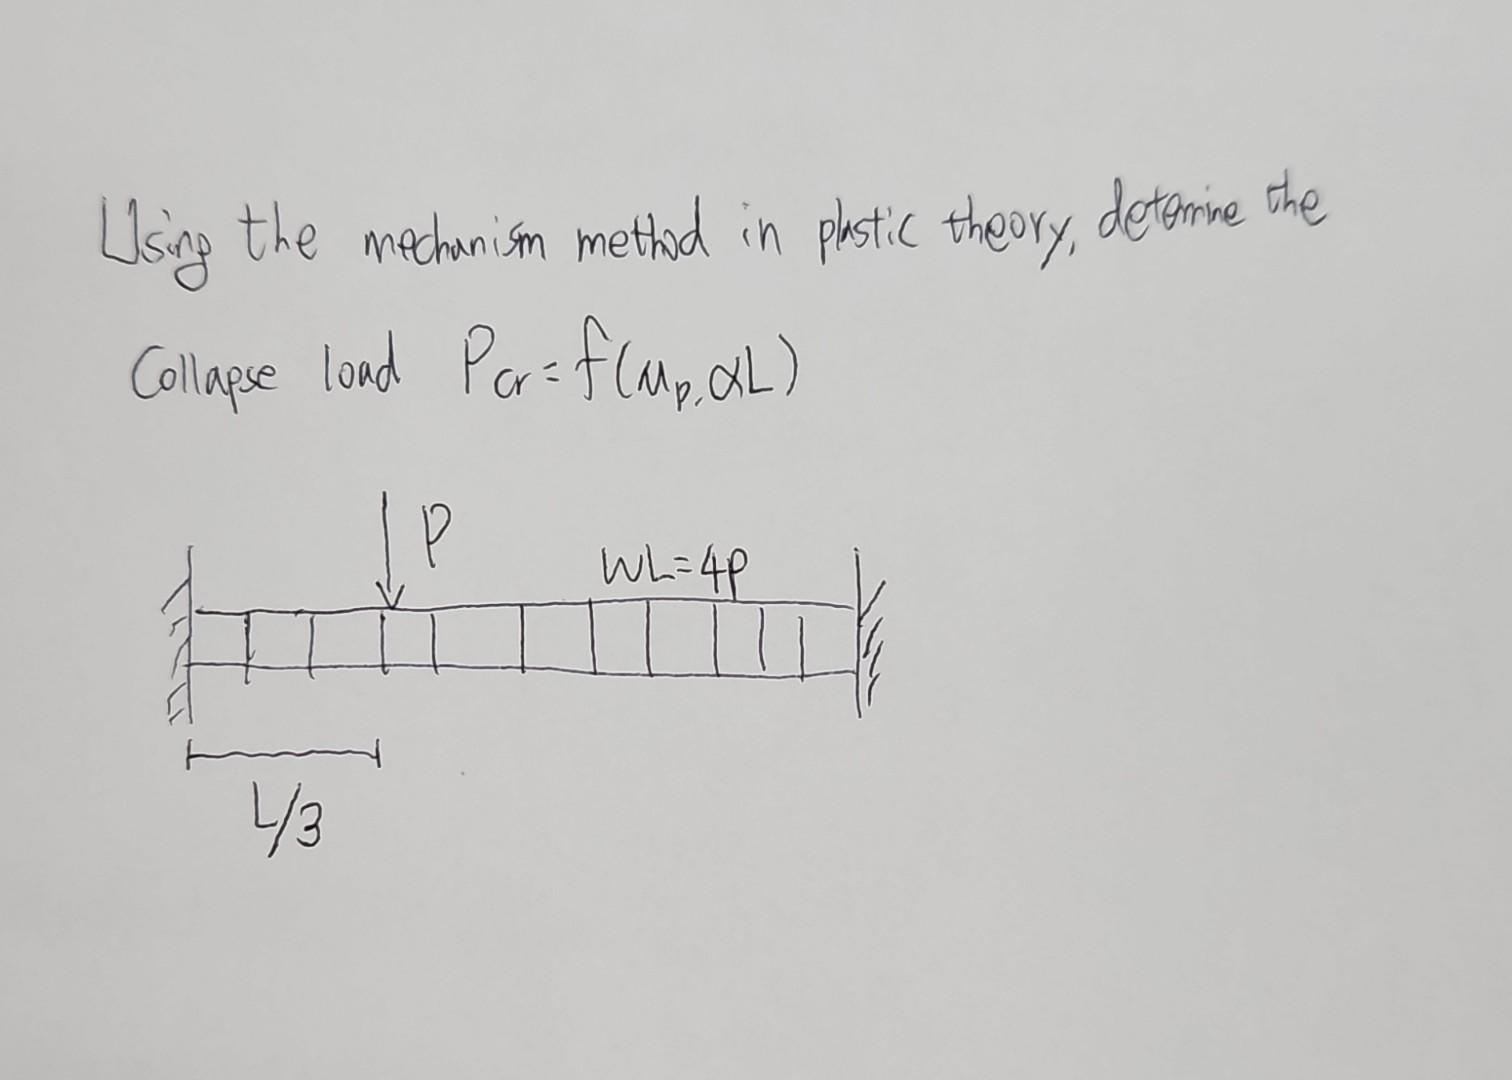 Using the mechanism method in plastic theory, determine the
Collapse load Pcr = f(Mp, αL)
P
WL=4P
L/3